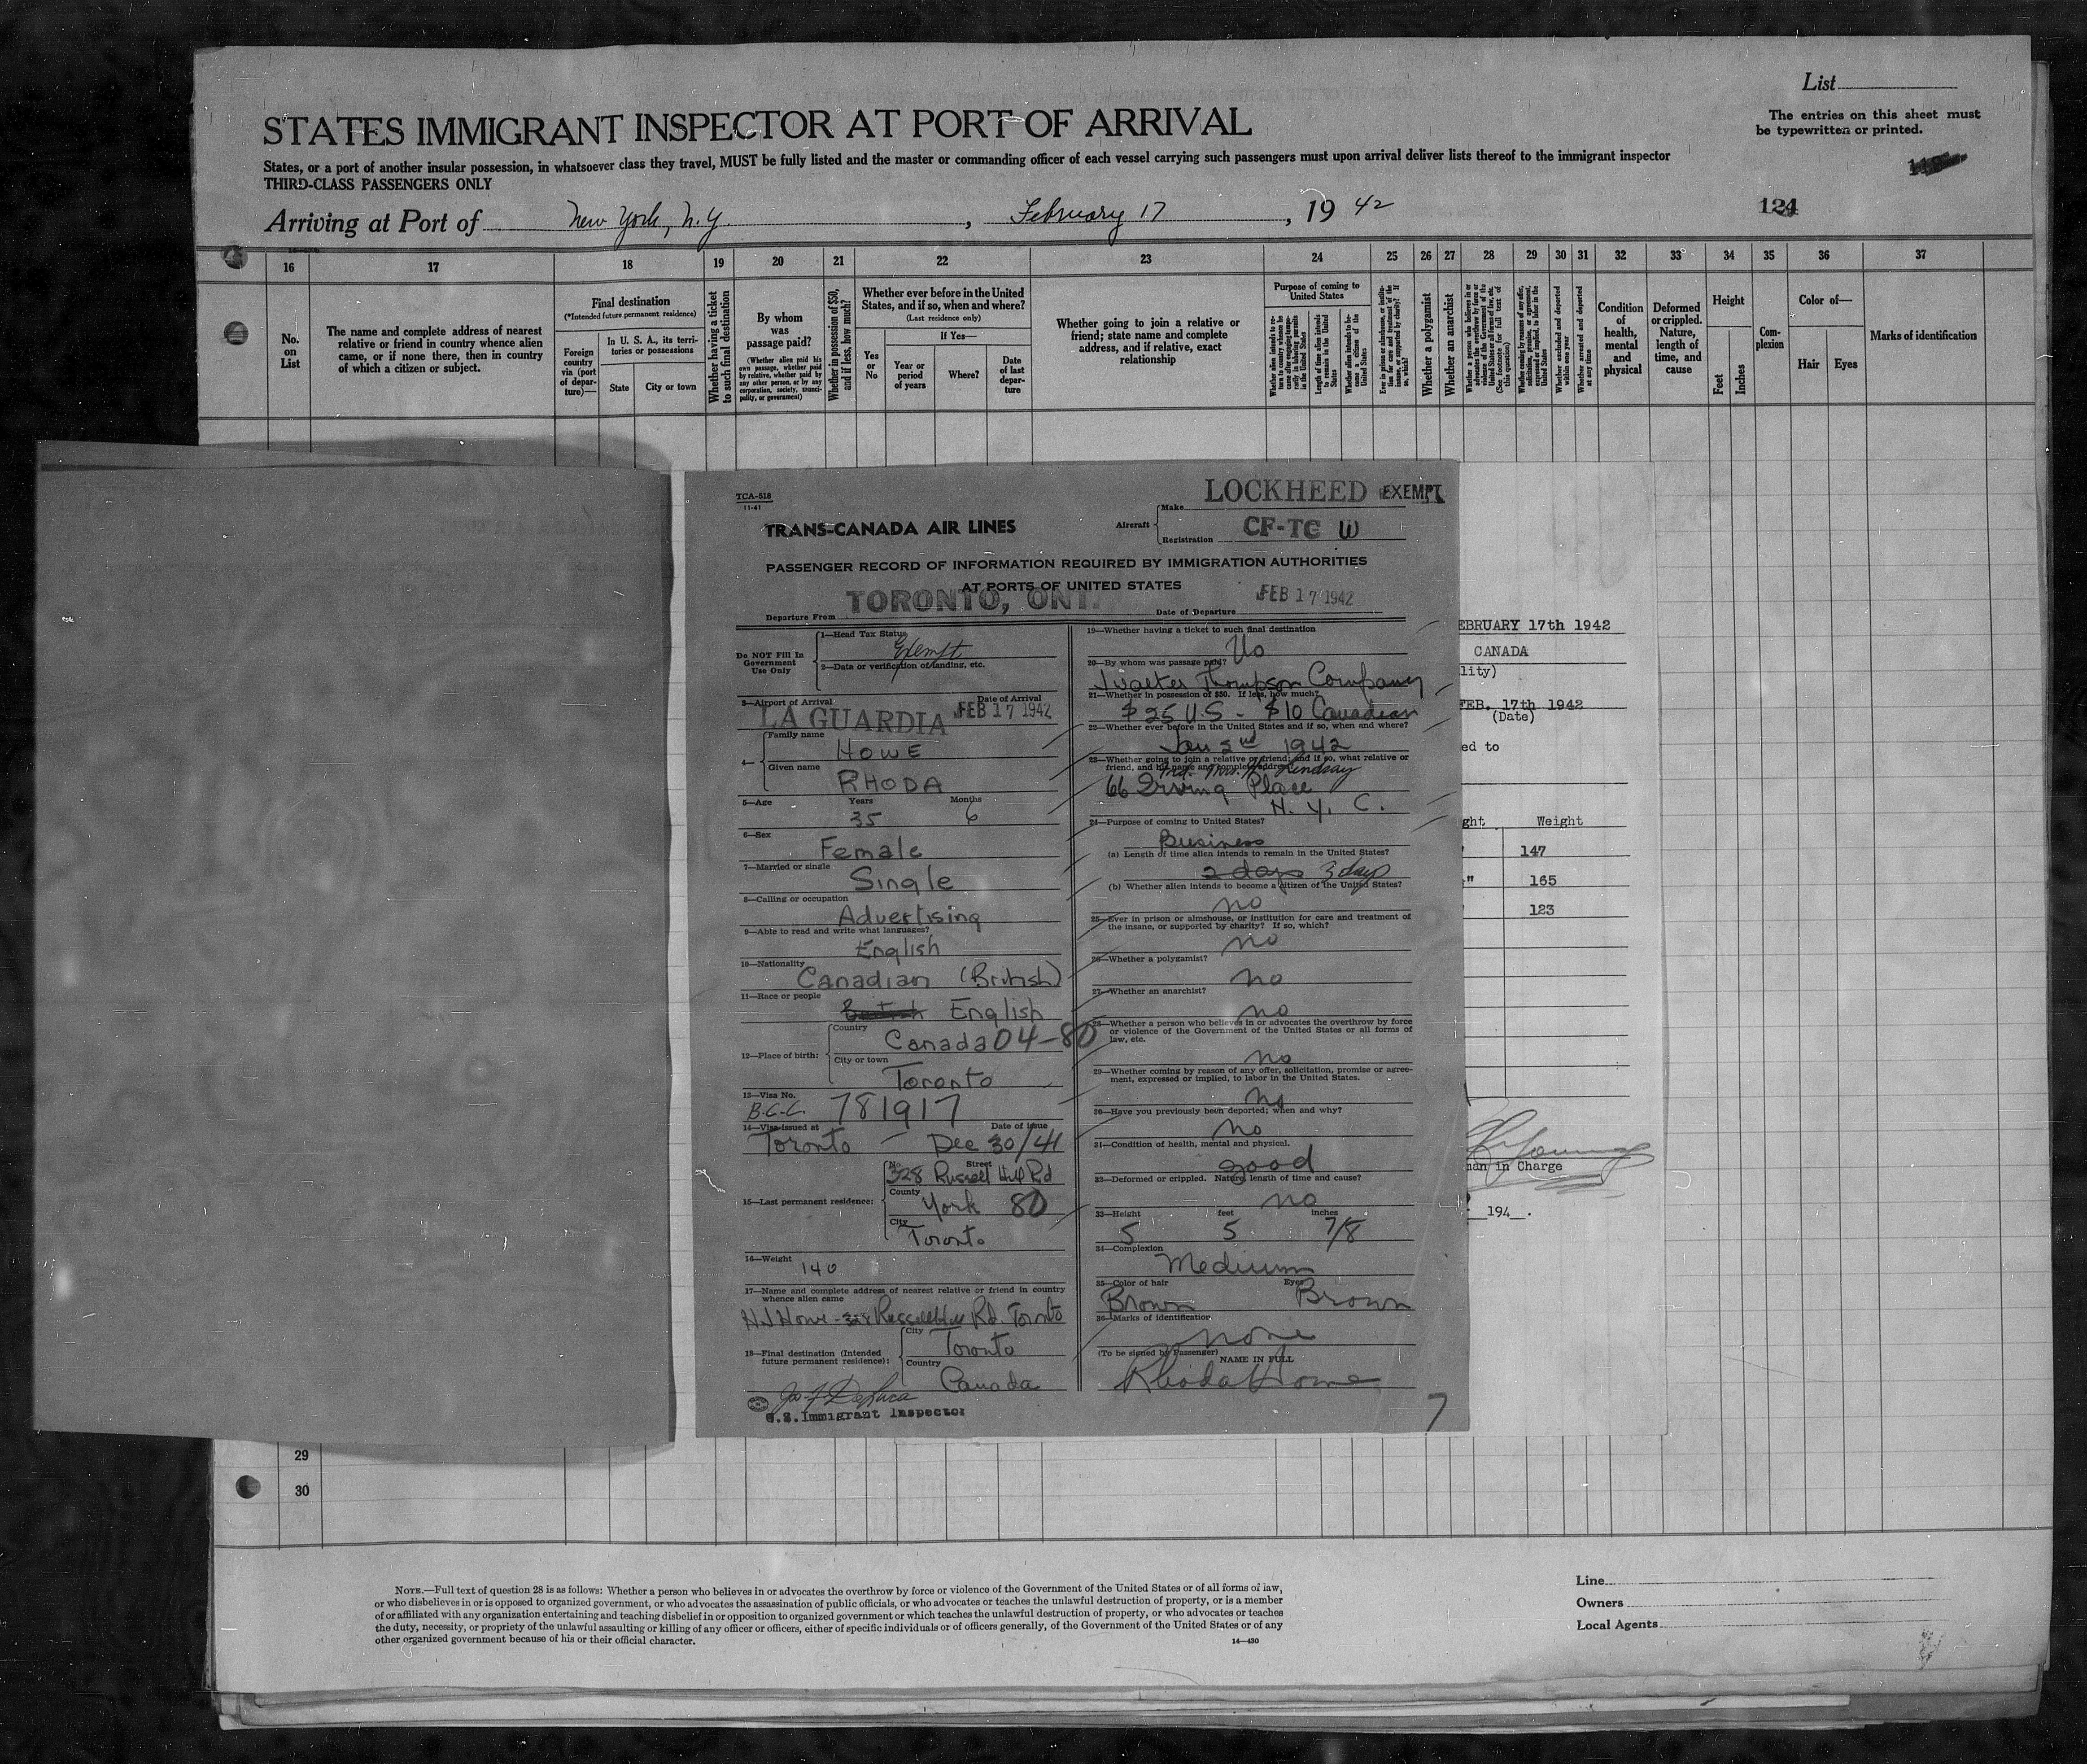 List
The entries on this sheet must
be typewritten or printed.
STATES IMMIGRANT INSPECTOR AT PORT OF ARRIVAL
States, or a port of another insular possession, in whatsoever class they travel, MUST be fully listed and the master or commanding officer of each vessel carrying such passengers must upon arrival deliver lists thereof to the immigrant inspector
THIRD-CLASS PASSENGERS ONLY
Arriving at Port of New York, N.Y. , February 17 , 19 42
124
16 17 18 19 20 21 22 23 24 25 26 27 28 29 30 31 32 33 34 35 36 37
No. on List
The name and complete address of nearest
relative or friend in country whence alien
came, or if none there, then in country
of which a citizen or subject.
Final destination
(*Intended future permanent residence)
Foreign country via (port of departure)—
In U. S. A., its territories or possessions
State
City or town
Whether having a ticket to such final destination
By whom was passage paid?
(Whether alien paid his own passage, whether paid by relative, whether paid by any other person, or by any corporation, society, municipality, or government)
Whether in possession of $50, and if less, how much?
Whether ever before in the United
States, and if so, when and where?
(Last residence only)
Yes or No
If Yes—
Year or period of years
Where?
Date of last departure
Whether going to join a relative or
friend; state name and complete
address, and if relative, exact
relationship
Purpose of coming to
United States
Whether a polygamist
Whether an anarchist
Condition of health, mental and physical
Deformed or crippled. Nature, length of time, and cause
Height
Feet
Inches
Complexion
Color of—
Hair
Eyes
Marks of identification
TCA-518
11-41
TRANS-CANADA AIR LINES
LOCKHEED EXEMPT
Aircraft
Make
Registration CF-TC W
PASSENGER RECORD OF INFORMATION REQUIRED BY IMMIGRATION AUTHORITIES
AT PORTS OF UNITED STATES
Departure From TORONTO, ONT.
Date of Departure FEB 17 1942
Do NOT Fill In
Government
Use Only
1—Head Tax Status
Exempt
2—Data or verification of landing, etc.
3—Airport of Arrival
Date of Arrival
LA GUARDIA FEB 17 1942
4—
Family name
HOWE
Given name
RHODA
5—Age Years Months
35 6
6—Sex
Female
7—Married or single
Single
8—Calling or occupation
Advertising
9—Able to read and write what languages?
English
10—Nationality
Canadian (British)
11—Race or people
British English
12—Place of birth:
Country
Canada 04-80
City or town
Toronto
13—Visa No.
B.C.C. 781917
14—Visa issued at Date of issue
Toronto — Dec 30/41
15—Last permanent residence:
No. Street
328 Russell Hill Rd
County
York 80
City
Toronto
16—Weight
140
17—Name and complete address of nearest relative or friend in country
whence alien came
HJ Howe - 328 Russell Hill Rd. Toronto
18—Final destination (Intended
future permanent residence):
City
Toronto
Country
Canada
U.S. Immigrant Inspector
19—Whether having a ticket to such final destination
No
20—By whom was passage paid?
J Walter Thompson Company
21—Whether in possession of $50. If less, how much?
$25 U.S - $10 Canadian
22—Whether ever before in the United States and if so, when and where?
Jan 2nd 1942
23—Whether going to join a relative or friend; and if so, what relative or
friend, and his name and complete address.
Lindsay
66 Irving Place
N. Y. C.
24—Purpose of coming to United States?
Business
(a) Length of time alien intends to remain in the United States?
2 days 3 days
(b) Whether alien intends to become a citizen of the United States?
no
25—Ever in prison or almshouse, or institution for care and treatment of
the insane, or supported by charity? If so, which?
no
26—Whether a polygamist?
no
27—Whether an anarchist?
no
28—Whether a person who believes in or advocates the overthrow by force
or violence of the Government of the United States or all forms of
law, etc.
no
29—Whether coming by reason of any offer, solicitation, promise or agree-
ment, expressed or implied, to labor in the United States.
no
30—Have you previously been deported; when and why?
no
31—Condition of health, mental and physical.
good
32—Deformed or crippled. Nature, length of time and cause?
no
33—Height feet inches
5 5 7/8
34—Complexion
Medium
35—Color of hair Eyes
Brown Brown
36—Marks of identification
none
(To be signed by Passenger) NAME IN FULL
Rhoda Howe
7
EBRUARY 17th 1942
CANADA
lity)
FEB. 17th 1942
(Date)
ed to
ght Weight
147
" 165
123
man in Charge
194 .
29
30
NOTE.—Full text of question 28 is as follows: Whether a person who believes in or advocates the overthrow by force or violence of the Government of the United States or of all forms of law,
or who disbelieves in or is opposed to organized government, or who advocates the assassination of public officials, or who advocates or teaches the unlawful destruction of property, or is a member
of or affiliated with any organization entertaining and teaching disbelief in or opposition to organized government or which teaches the unlawful destruction of property, or who advocates or teaches
the duty, necessity, or propriety of the unlawful assaulting or killing of any officer or officers, either of specific individuals or of officers generally, of the Government of the United States or of any
other organized government because of his or their official character.
14—430
Line
Owners
Local Agents